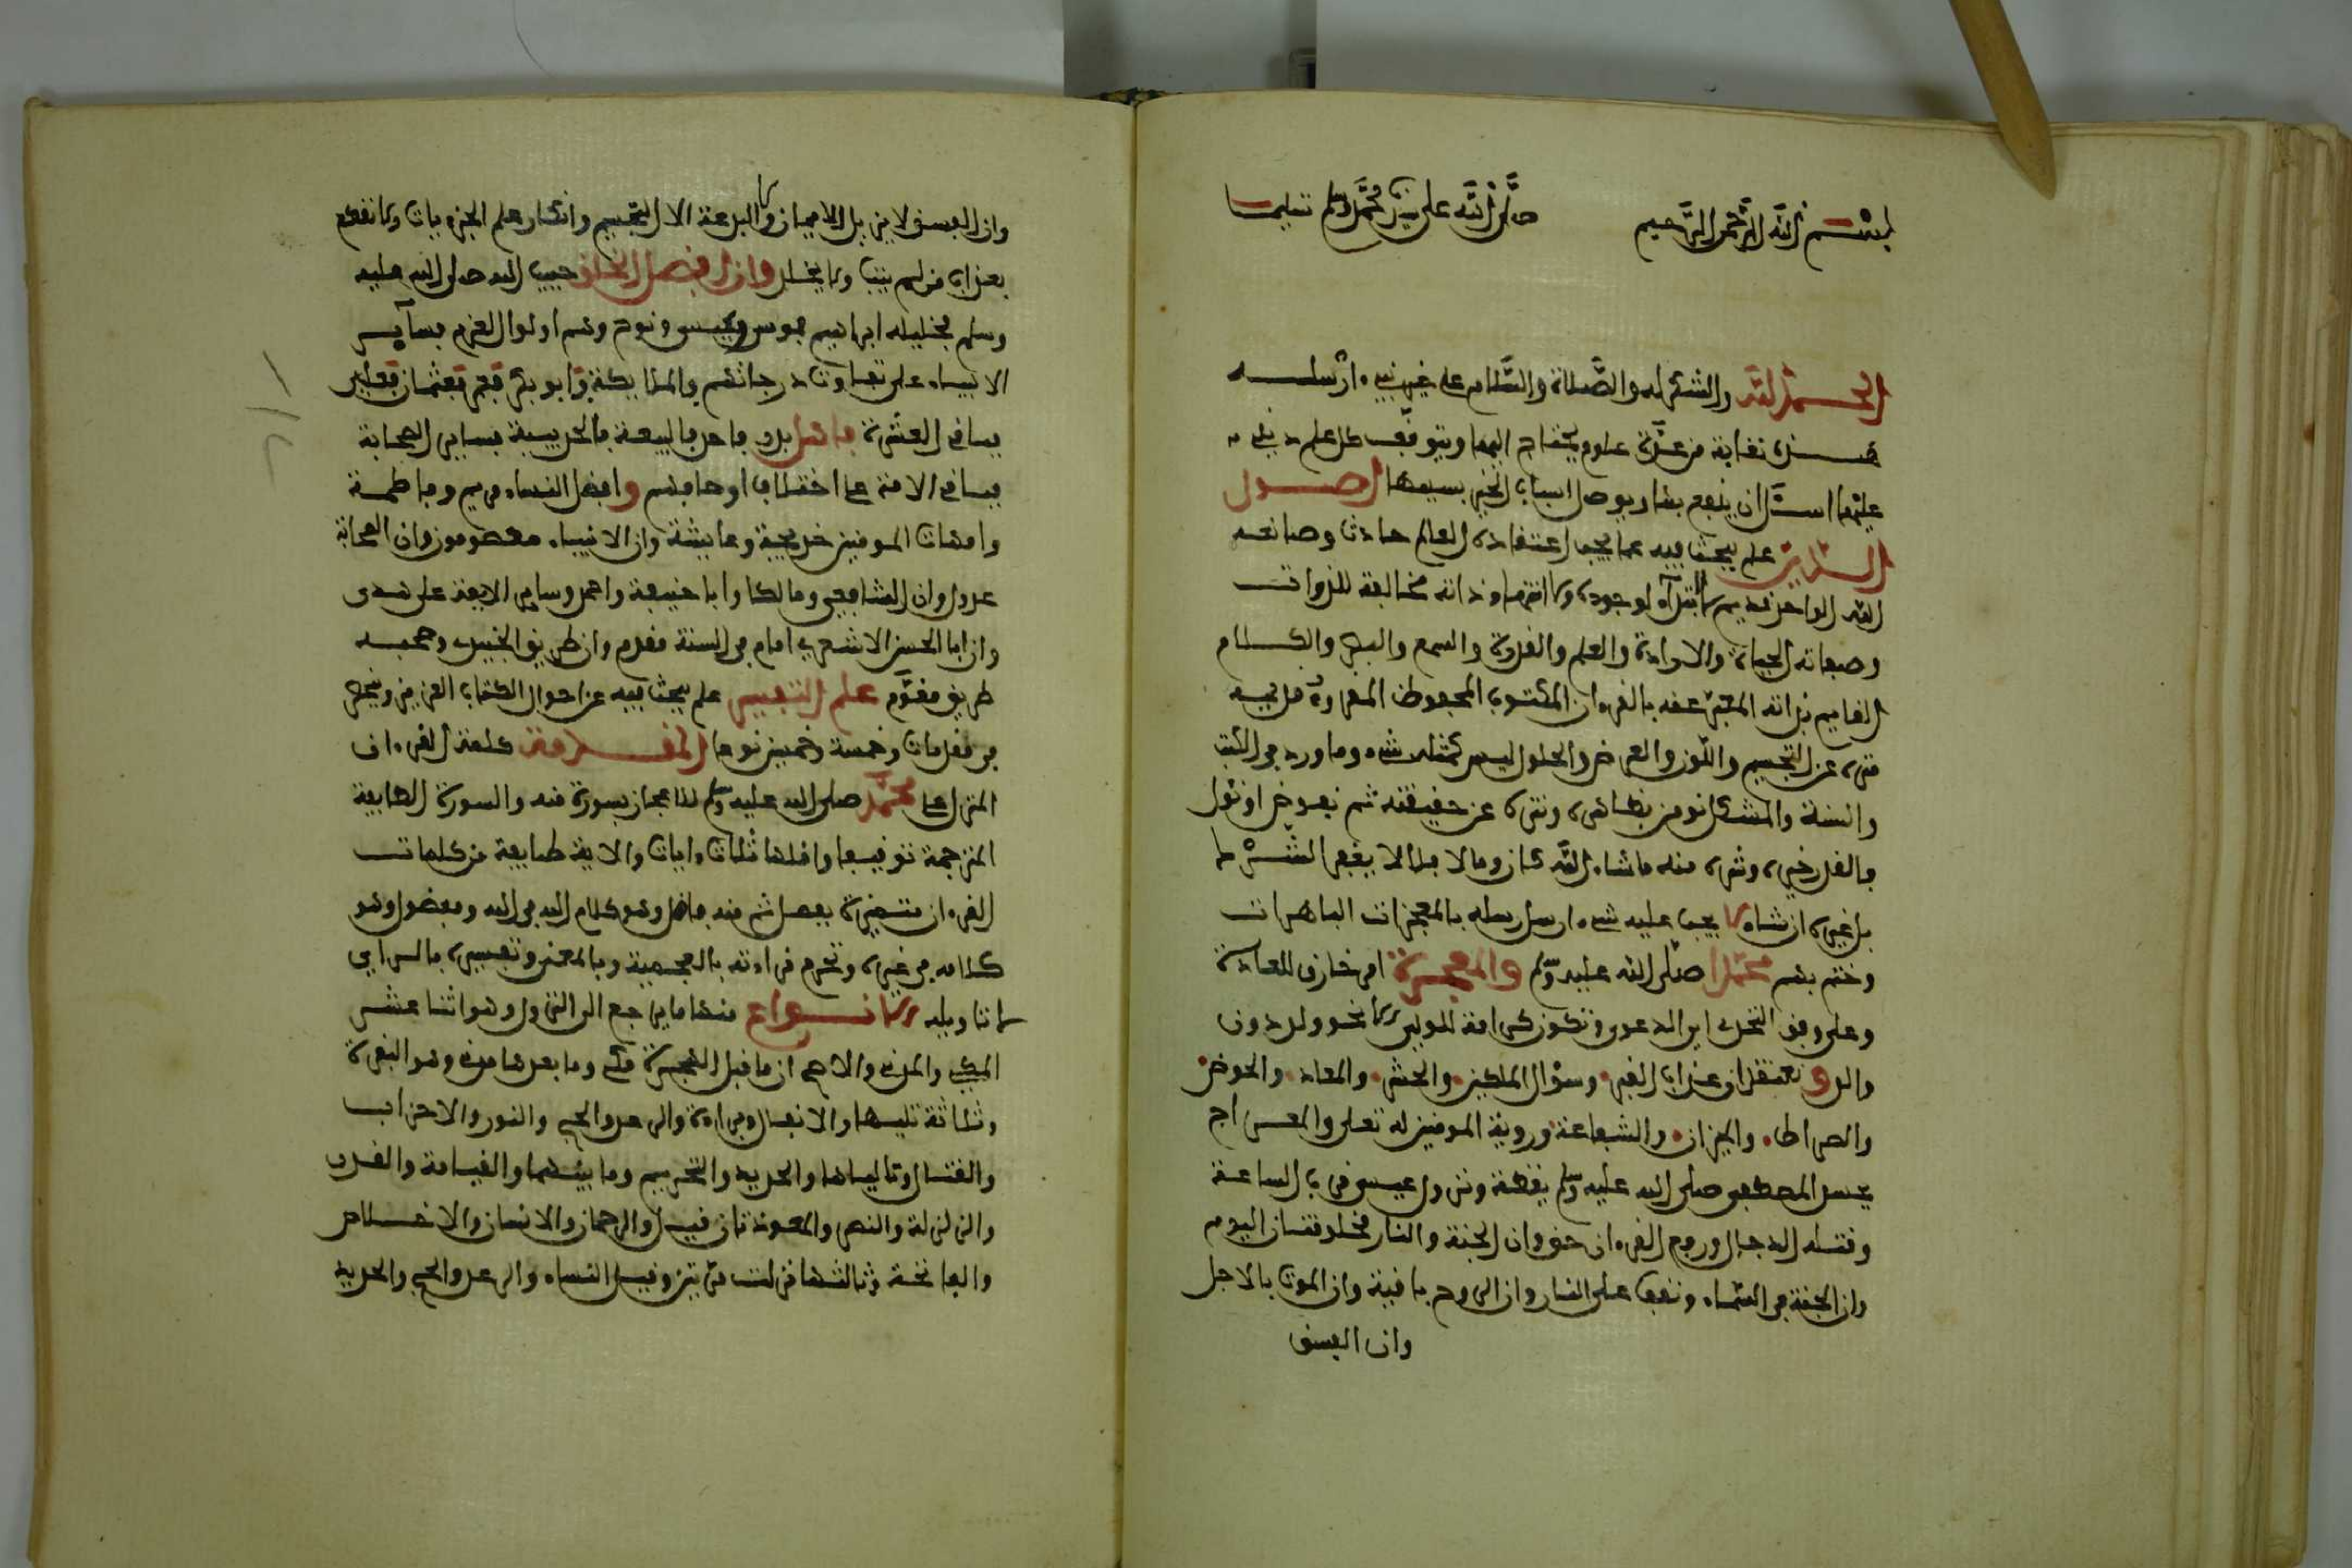 بسم الله الرحمن الرحيم صلى الله على سيدنا محمد وسلم تسليما
الحمد لله والشكر له والصلاة والسلام على خير نبيء ارسله
هذه نقاية من عدة علوم يحتاج اليها ويتوقف كل علم ديني
عليها اسئل ان ينفع بها ويوصل اسباب الخير بسببها اصول
الدين علم يبحث فيه عما يجب اعتقاده العالم حادث وصانعه
الله الواحد قديم لا ابتدآء لوجوده ولا انتهاء ذاته مخالفة للذوات
وصفاته الحياة والارادة والعلم والقدرة والسمع والبصر والكلام
القايم بذاته المعبر عنه بالقرءان المكتوب المحفوظ المقروء قديمه
منزه عن التجسيم واللون والعرض والحلول ليس كمثله شيء وما ورد في الكتب
والسنة والمشكل نومن بظاهره وننزه عن حقيقته ثم نفوض او نئول
والقدر خيره وشره منه ما شاء الله كان وما لا فلا لا يغفر الشرك
بل غيره ان شاء لا يجب عليه شيء ارسل رسله بالمعجزات الباهرات
وختم بهم محمدا صلى الله عليه وسلم والمعجزة امر خارق للعادة
وعلى وفق التحدي اي الدعوى وتكون كرامة للولي لا نحو ولد دون
والد ونعتقد ان عذاب القبر وسؤال الملكين والحشر والمعاد والحوض
والصراط والميزان والشفاعة وروية المومنين له تعلى والمعراج
بجسد المصطفى صلى الله عليه وسلم يقظة ونزول عيسى قرب الساعة
وقتله الدجال ورفع القرءان حق وان الجنة والنار مخلوقتان اليوم
وان الجنة في السماء ونقف على النار وان الروح باقية وان الموت بالاجل
وان الفسق
وان الفسق لا يزيل الايمان ولا البدعة الا التجسيم وانكار علم الجزءيات ولا نقطع
بعذاب من لم يتب ولا يخلد وان افضل الخلق حبيب الله صلى الله عليه
وسلم فخليله ابراهيم فموسى وعيسى ونوح وهم اولوا العزم فسآير
الانبياء على تفاوت درجاتهم والملايكة وابو بكر فعمر فعثمان فعلي
فباقي العشرة فاهل بدر فاحد فالبيعة بالحديبية فساير الصحابة
فباقي الامة على اختلاف اوصافهم وافضل النساء مريم وفاطمة
وامهات المومنين خديجة وعايشة وان الانبياء معصومون وان الصحابة
عدول وان الشافعي ومالكا وابا حنيفة واحمد وساير الايمة على هدى
وان ابا الحسن الاشعري امام في السنة مقدم وان طريق الجنيد وصحبه
طريق مقوم علم التفسير علم يبحث فيه عن احوال الكتاب العزيز وينحصر
في مقدمات وخمسة وخمسين نوعا المقدمة كلمة القرءان
المنزل على محمد صلى الله عليه وسلم للاعجاز بسورة منه والسورة الطايفة
المترجمة توقيفا واقلها ثلاث ءايات والاية طايفة من كلمات
القرءان متميزة بفصل ثم منه فاضل وهو كلام الله في الله ومفضول وهو
كلامه في غيره وتحرم قراءته بالعجمية وبالمعنى وتفسيره بالراي
لا تاويله الانواع منها ما يرجع الى النزول وهو اثنا عشر
المكي والمدني والاصح ان ما قبل الهجرة مكي وما بعدها مدني وهو البقرة
وثلاثة تليها والانفال وبراءة والرعد والحج والنور والاحزاب
والقتال وتالياها والحديد والتحريم وما بينهما والقيامة والقدر
والزلزلة والنصر والمعوذتان قيل والرحمان والانسان والاخلاص
والفاتحة وثالثها نزلت مرتين وقيل النساء والرعد والحج والحديد